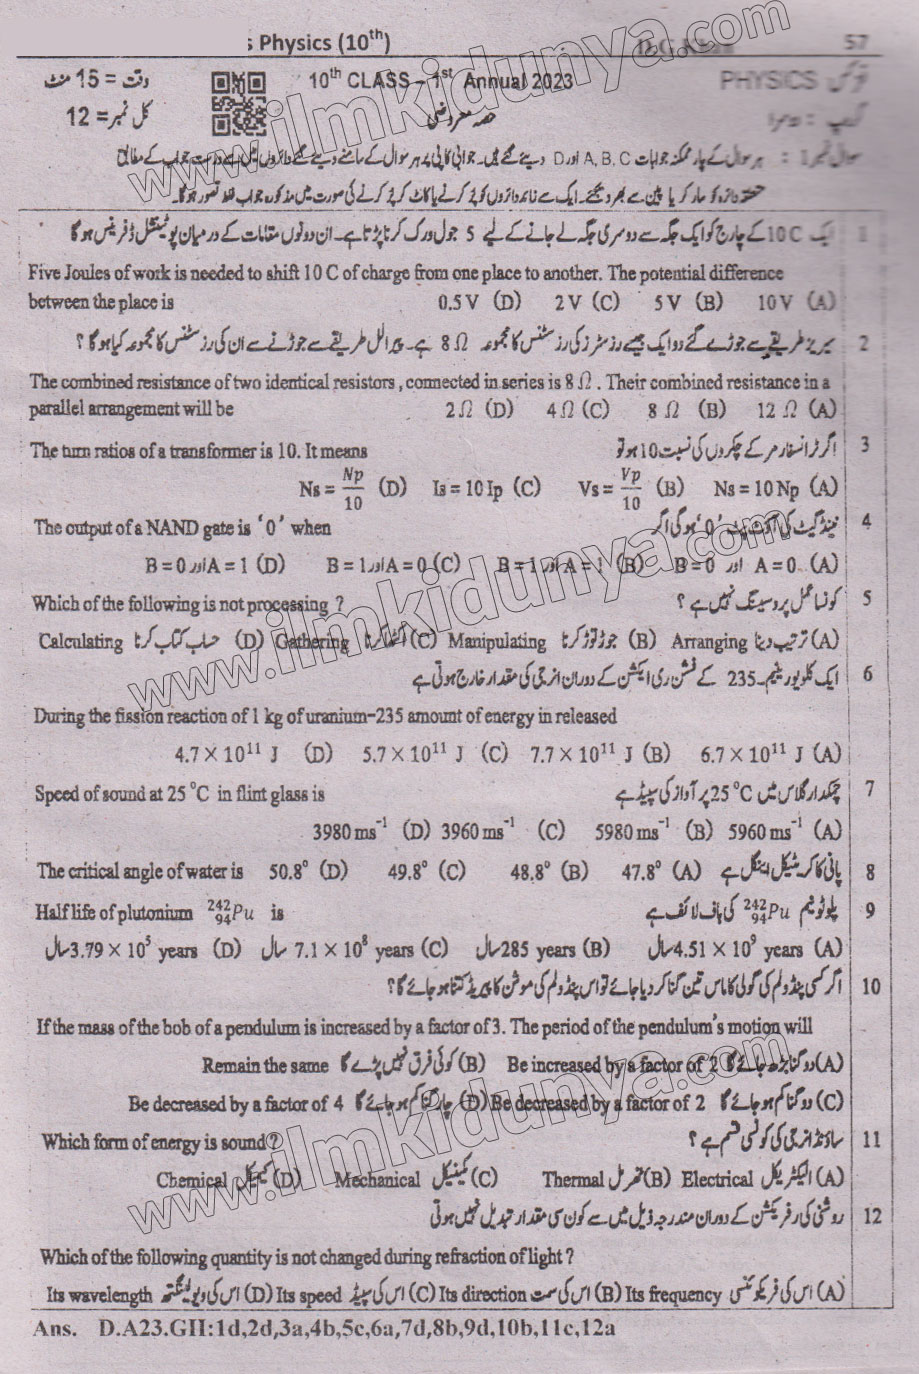 s Physics (10th) D.G.Khan 57
وقت = 15 منٹ 10th CLASS – 1st Annual 2023 PHYSICS فزکس
کل نمبر = 12 حصہ معروضی گروپ : دوسرا
سوال نمبر 1 : ہر سوال کے چار ممکنہ جوابات A, B, C اور D دیئے گئے ہیں۔ جوابی کاپی پر ہر سوال کے سامنے دیئے گئے دائروں میں سے درست جواب کے مطابق
متعلقہ دائرہ کو مارکر یا پین سے بھر دیجئے۔ ایک سے زائد دائروں کو پُر کرنے یا کاٹ کر پُر کرنے کی صورت میں مذکورہ جواب غلط تصور ہوگا۔
1 ایک 10 C کے چارج کو ایک جگہ سے دوسری جگہ لے جانے کے لیے 5 جول ورک کرنا پڑتا ہے۔ ان دونوں مقامات کے درمیان پوٹینشل ڈفرینس ہو گا
Five Joules of work is needed to shift 10 C of charge from one place to another. The potential difference
between the place is 0.5 V (D) 2 V (C) 5 V (B) 10 V (A)
2 سیریز طریقے سے جوڑے گئے دو ایک جیسے رزسٹرز کی رزسٹنس کا مجموعہ 8 Ω ہے۔ پیرالل طریقے سے جوڑنے سے ان کی رزسٹنس کا مجموعہ کیا ہو گا ؟
The combined resistance of two identical resistors , connected in series is 8 Ω . Their combined resistance in a
parallel arrangement will be 2 Ω (D) 4 Ω (C) 8 Ω (B) 12 Ω (A)
The turn ratios of a transformer is 10. It means اگر ٹرانسفارمر کے چکروں کی نسبت 10 ہو تو 3
Ns = Np/10 (D) Is = 10 Ip (C) Vs = Vp/10 (B) Ns = 10 Np (A)
The output of a NAND gate is ‘0’ when نینڈ گیٹ کی آؤٹ پٹ ‘0’ ہو گی اگر 4
B = 0 اور A = 1 (D) B = 1 اور A = 0 (C) B = 1 اور A = 1 (B) B = 0 اور A = 0 (A)
Which of the following is not processing ? کونسا عمل پروسیسنگ نہیں ہے ؟ 5
Calculating حساب کتاب کرنا (D) Gathering اکٹھا کرنا (C) Manipulating جوڑ توڑ کرنا (B) Arranging ترتیب دینا (A)
6 ایک کلو یورینیم۔235 کے فشن ری ایکشن کے دوران انرجی کی مقدار خارج ہوتی ہے
During the fission reaction of 1 kg of uranium–235 amount of energy in released
4.7 × 10¹¹ J (D) 5.7 × 10¹¹ J (C) 7.7 × 10¹¹ J (B) 6.7 × 10¹¹ J (A)
Speed of sound at 25 °C in flint glass is چمکدار گلاس میں 25 °C پر آواز کی سپیڈ ہے 7
3980 ms⁻¹ (D) 3960 ms⁻¹ (C) 5980 ms⁻¹ (B) 5960 ms⁻¹ (A)
The critical angle of water is 50.8° (D) 49.8° (C) 48.8° (B) 47.8° (A) پانی کا کریٹیکل اینگل ہے 8
Half life of plutonium ²⁴²₉₄Pu is پلوٹونیم ²⁴²₉₄Pu کی ہاف لائف ہے 9
سال 3.79 × 10⁵ years (D) سال 7.1 × 10⁸ years (C) سال 285 years (B) سال 4.51 × 10⁹ years (A)
10 اگر کسی پنڈولم کی گولی کا ماس تین گنا کر دیا جائے تو اس پنڈولم کی موشن کا پیریڈ کتنا ہو جائے گا ؟
If the mass of the bob of a pendulum is increased by a factor of 3. The period of the pendulum's motion will
Remain the same کوئی فرق نہیں پڑے گا (B) Be increased by a factor of 2 دو گنا بڑھ جائے گا (A)
Be decreased by a factor of 4 چار گنا کم ہو جائے گا (D) Be decreased by a factor of 2 دو گنا کم ہو جائے گا (C)
Which form of energy is sound ? ساؤنڈ انرجی کی کونسی قسم ہے ؟ 11
Chemical کیمیکل (D) Mechanical مکینیکل (C) Thermal تھرمل (B) Electrical الیکٹریکل (A)
12 روشنی کی رفریکشن کے دوران مندرجہ ذیل میں سے کون سی مقدار تبدیل نہیں ہوتی
Which of the following quantity is not changed during refraction of light ?
Its wavelength اس کی ویولینگتھ (D) Its speed اس کی سپیڈ (C) Its direction اس کی سمت (B) Its frequency اس کی فریکوئنسی (A)
Ans. D.A23.GII:1d,2d,3a,4b,5c,6a,7d,8b,9d,10b,11c,12a
www.ilmkidunya.com
www.ilmkidunya.com
www.ilmkidunya.com